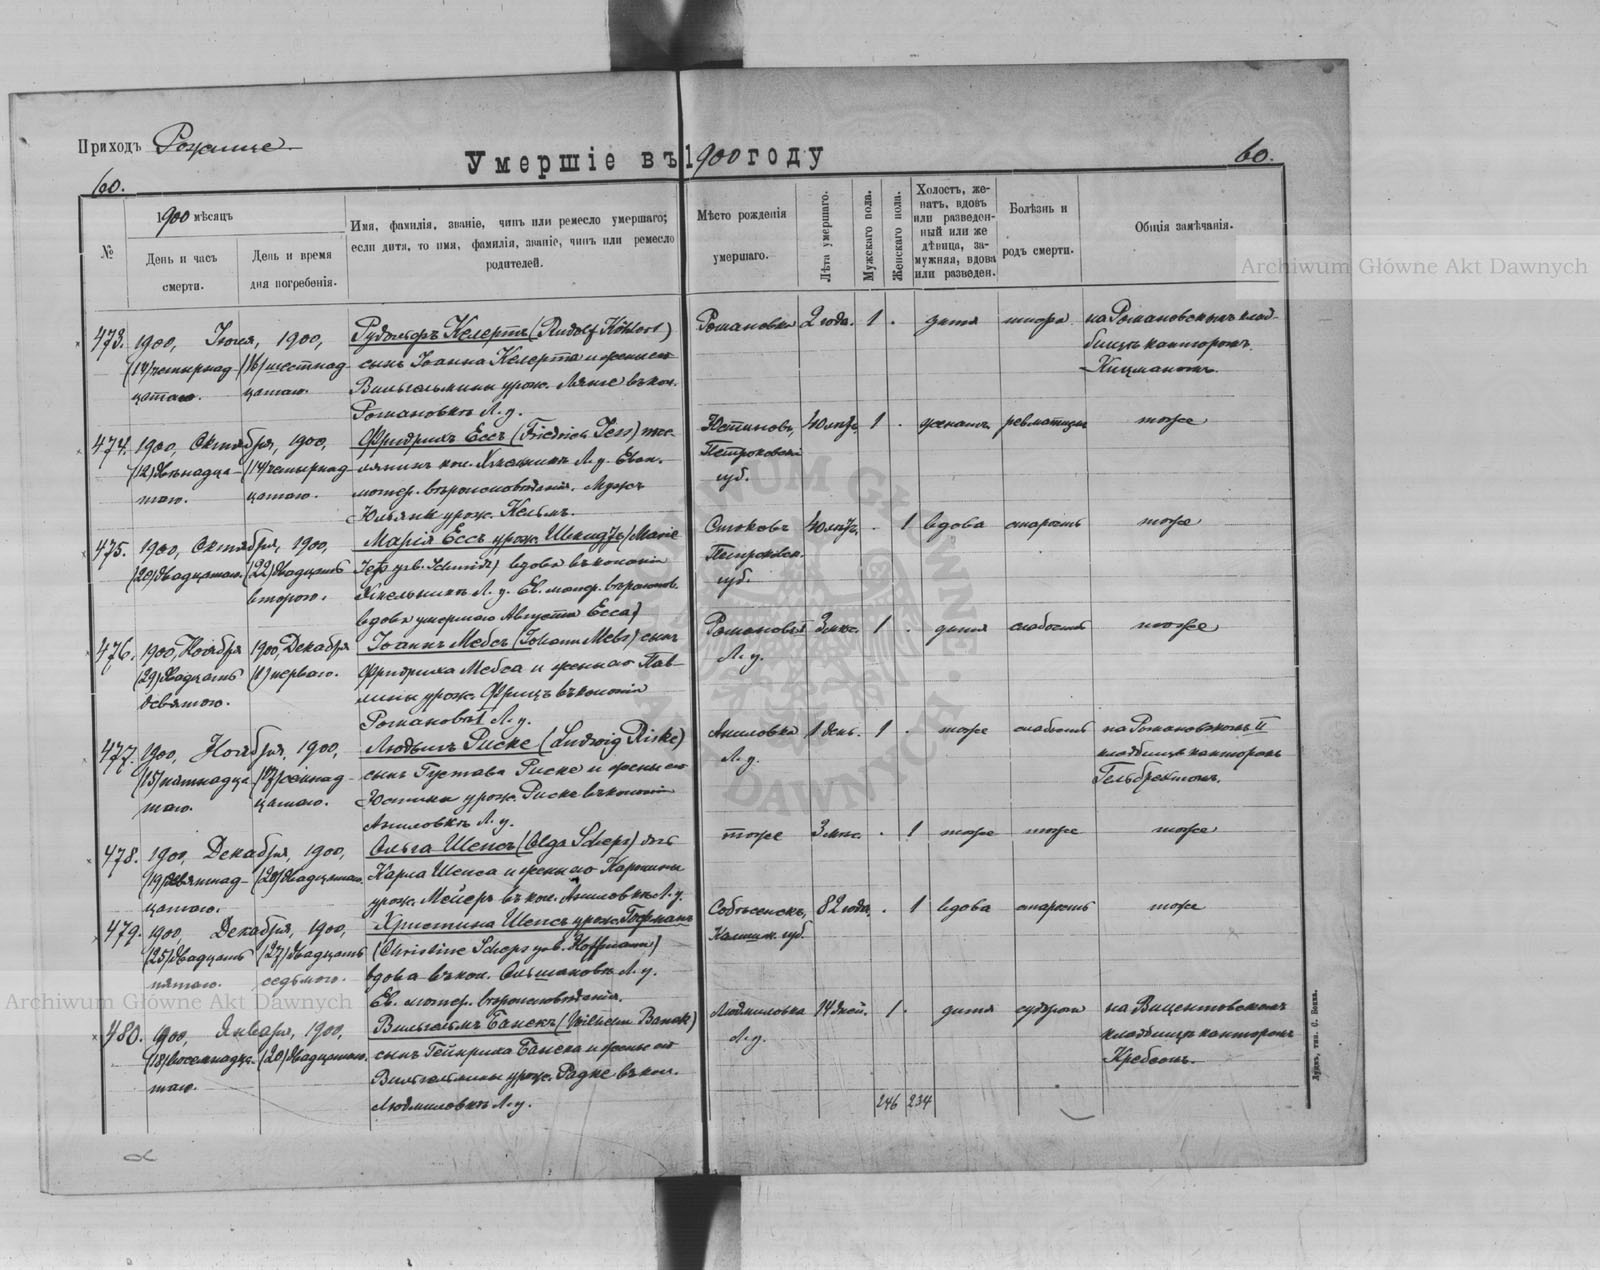 Приходъ Рожище
Умершіе въ 1900 году
60.
60.
№
1900 мѣсяцъ
День и часъ
смерти.
День и время
дня погребенія.
Имя, фамилія, званіе, чинъ или ремесло умершаго;
если дитя, то имя, фамилія, званіе, чинъ или ремесло
родителей.
Мѣсто рожденія
умершаго.
Лѣта умершаго.
Мужскаго пола.
Женскаго пола.
Холостъ, же-
натъ, вдовъ
или разведен-
ный или же
дѣвица, за-
мужняя, вдова
или разведен.
Болѣзнь и
родъ смерти.
Общія замѣчанія.
Archiwum Główne Akt Dawnych
473. 1900, 1900, Рудольфъ Келертъ (Rudolf Köhlert) Романовка 2 года. 1 . дитя на Романовскомъ клад-
(14) четырнад- (16) шестнад- сынъ Іоанна Келерта и жены его бищѣ канторомъ
цатаго. цатаго. Вильгельмины урож. въ кол. Кицманомъ.
Романовкѣ Л. у.
474. 1900, Октября, 1900, Фридрихъ Ессъ (Friedrich Jess) 1 . женатъ ревматизмъ тоже
(12) двѣнадца- (14) четырнад- кол. Л. у. Еван. Петроковской
таго. цатаго. лютер. вѣроисповѣданія. Мужъ губ.
Юльяны урож.
475. 1900, Октября, 1900, Марія Ессъ урож. Шмидтъ (Marie . 1 вдова старость тоже
(20) двадцатаго. (22) двадцать geb. Schmidt) вдова въ колоніи Петроковск.
второго. Л. у. Ев. лютер. вѣроисповѣд. губ.
вдова умершаго Августа Есса)
476. 1900, Ноября 1900, Декабря Іоаннъ Мебсъ (Johann Mebs) сынъ Романовка 3 мѣс. 1 . дитя слабость тоже
(29) двадцать (1) перваго. Фридриха Мебса и жены его Пав- Л. у.
девятаго. лины урож. Фрицъ въ колоніи
Романовкѣ Л. у.
477. 1900, Ноября, 1900, Людвигъ Риске (Ludwig Riske) 1 день. 1 . тоже слабость на Романовскомъ II
(15) пятнадца- (17) семнад- сынъ Густава Риске и жены его Л. у. кладбищѣ канторомъ
таго. цатаго. Юстины урож. Риске въ колоніи
Л. у.
478. 1900, Декабря, 1900, Ольга Шепсъ (Olga Scheps) дочь тоже 3 мѣс. . 1 тоже тоже тоже
(19) девятнад- (20) двадцатаго. Карла Шепса и жены его Каролины
цатаго. урож. Мейеръ въ кол. Л. у.
479. 1900, Декабря, 1900, Христина Шепсъ урож. Гофманъ 82 года. . 1 вдова старость тоже
(25) двадцать (27) двадцать (Christine Scheps geb. Hoffmann) губ.
пятаго. седьмого. вдова въ кол. Л. у.
Ев. лютер. вѣроисповѣданія.
480. 1900, Января, 1900, Вильгельмъ Банекъ (Wilhelm Banek) Людмиловка 14 дней. 1 . дитя судороги на Вицентовскомъ
(18) восемнадца- (20) двадцатаго. сынъ Гейнриха Банека и жены его Л. у. кладбищѣ канторомъ
таго. Вильгельмины урож. Радке въ кол. Кребсомъ.
Людмиловкѣ Л. у.
246 234
Archiwum Główne Akt Dawnych
ARCHIWUM GŁÓWNE AKT DAWNYCH